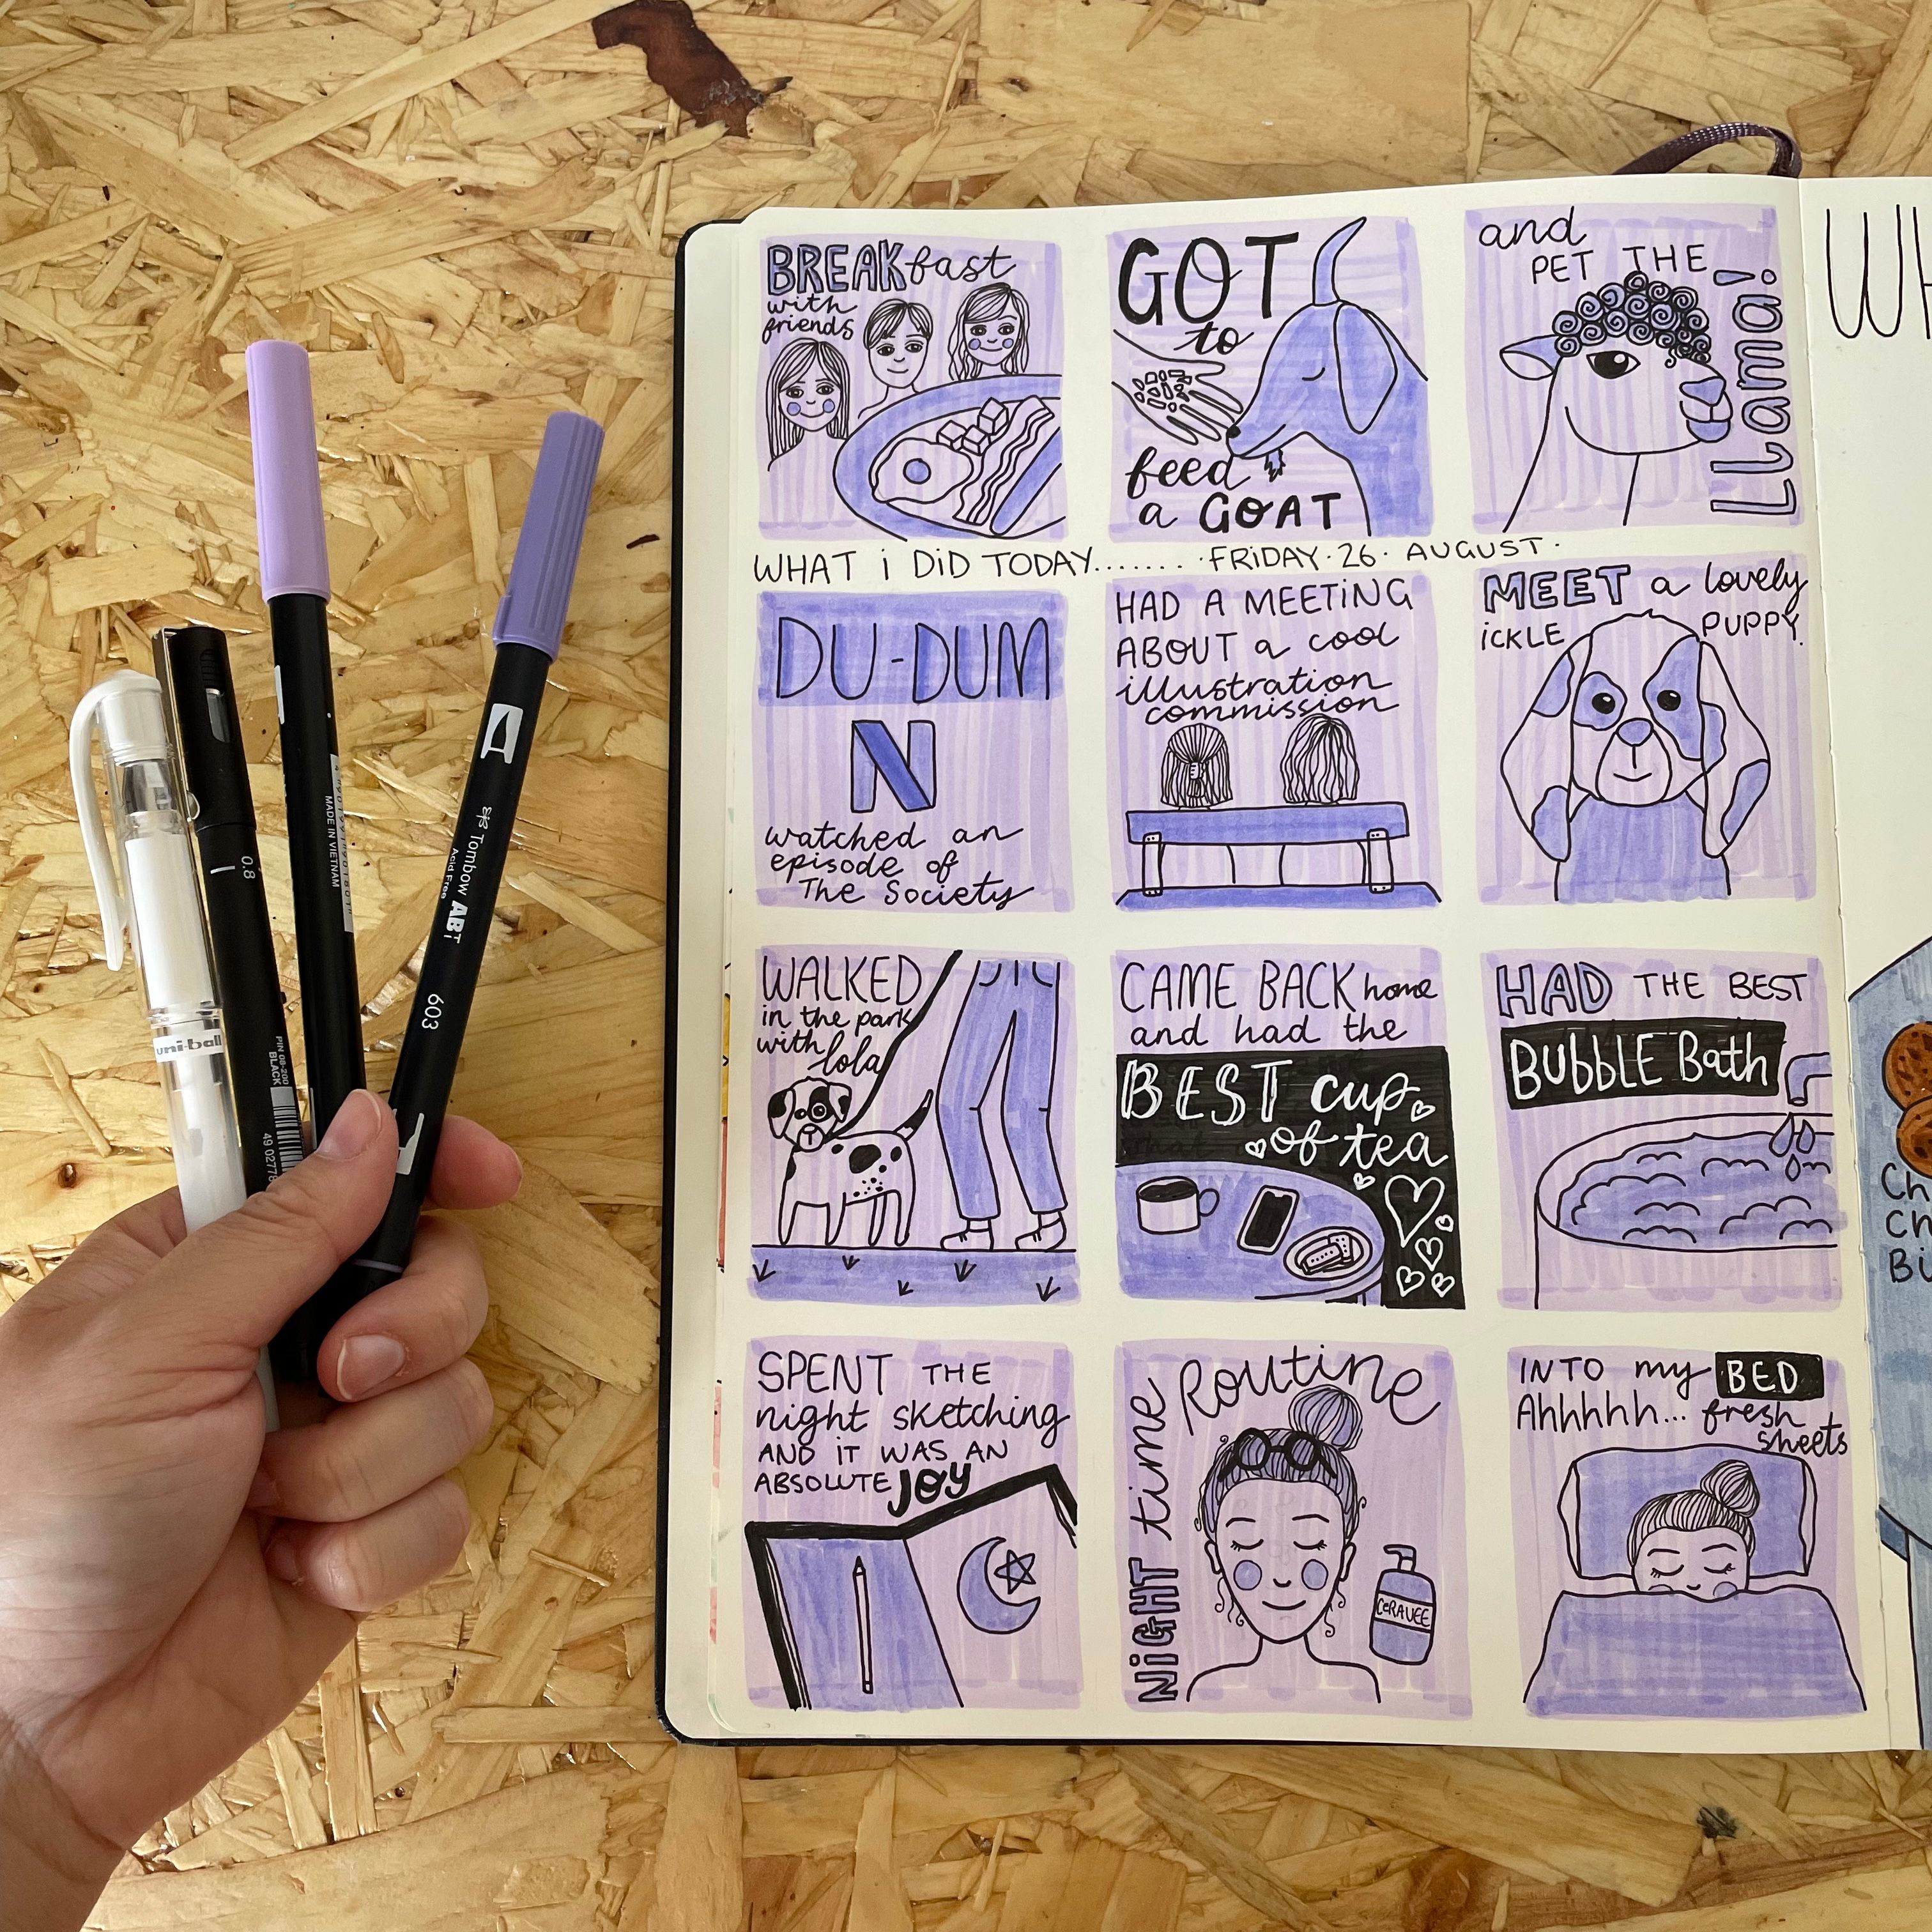 BREAKfast
with
friends
GOT
to
feed
a GOAT
and
PET THE
LLama!
WHAT i DiD TODAY....... ·FRiDAY·26· AUGUST·
DU-DUM
N
watched an
episode of
The Society
HAD A MEETiNG
ABOUT a cool
illustration
commission
MEET a lovely
iCKLE PUPPY.
WALKED
in the park
with lola
CAME BACK home
and had the
BEST cup
of tea
HAD THE BEST
BUBBLE Bath
SPENT THE
night sketching
AND iT WAS AN
ABSOLUTE JOY
NiGHT time
Routine
CERAVEE
INTO my BED
Ahhhhh... fresh
sheets
WH
Ch
Ch
Bi
uni-ball
0.8
PIN 08-200
BLACK
MADE IN VIETNAM
Tombow ABT
Acid Free
603